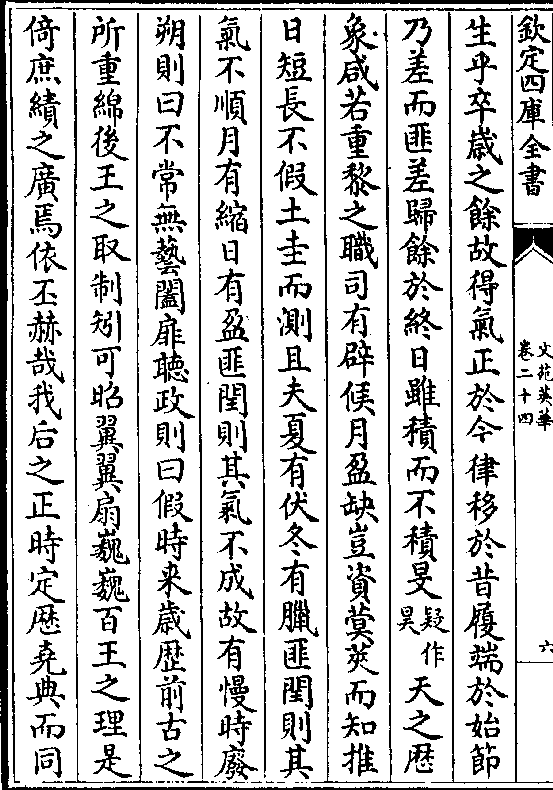 欽定四庫全書
文苑英華
卷二十四
六
生乎卒歳之餘故得氣正於今律移於昔履端於始節
乃差而匪差歸餘於終日雖積而不積旻疑作昊天之歴
象咸若重黎之職司有辟候月盈缺豈資蓂莢而知推
日短長不假土圭而測且夫夏有伏冬有臘匪閏則其
氣不順月有縮日有盈匪閏則其氣不成故有慢時廢
朔則曰不常無藝闔扉聽政則曰假時来歳歴前古之
所重綿後王之取制矧可昭翼翼扇巍巍百王之理是
倚庶績之廣焉依丕赫哉我后之正時定歴堯典而同